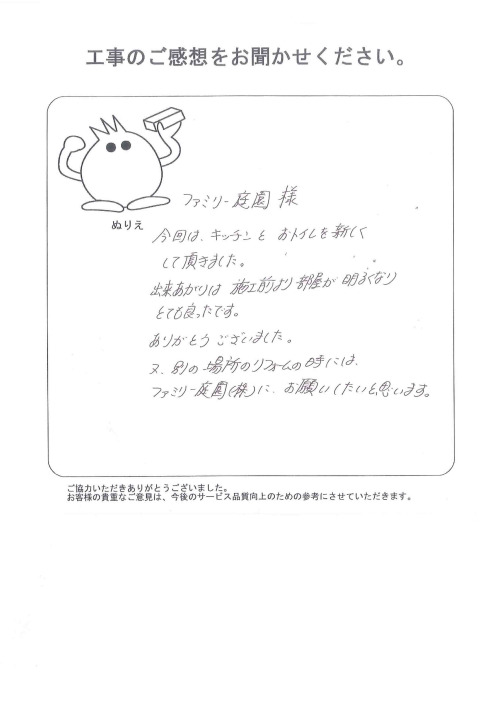 工事のご感想をお聞かせください。
ぬりえ
ファミリー庭園様
今回は、キッチンと おトイレを新しく
して頂きました。
出来あがりは 施工前より部屋が明るくなり
とても良ったです。
ありがとうございました。
又、別の場所のリフォームの時には、
ファミリー庭園(株)に、お願いしたいと思います。
ご協力いただきありがとうございました。
お客様の貴重なご意見は、今後のサービス品質向上のための参考にさせていただきます。